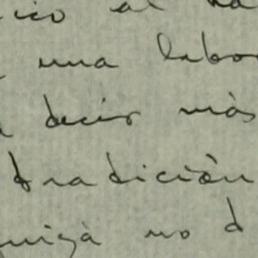 ico al
una labor
decir más
tradición
quizá no d